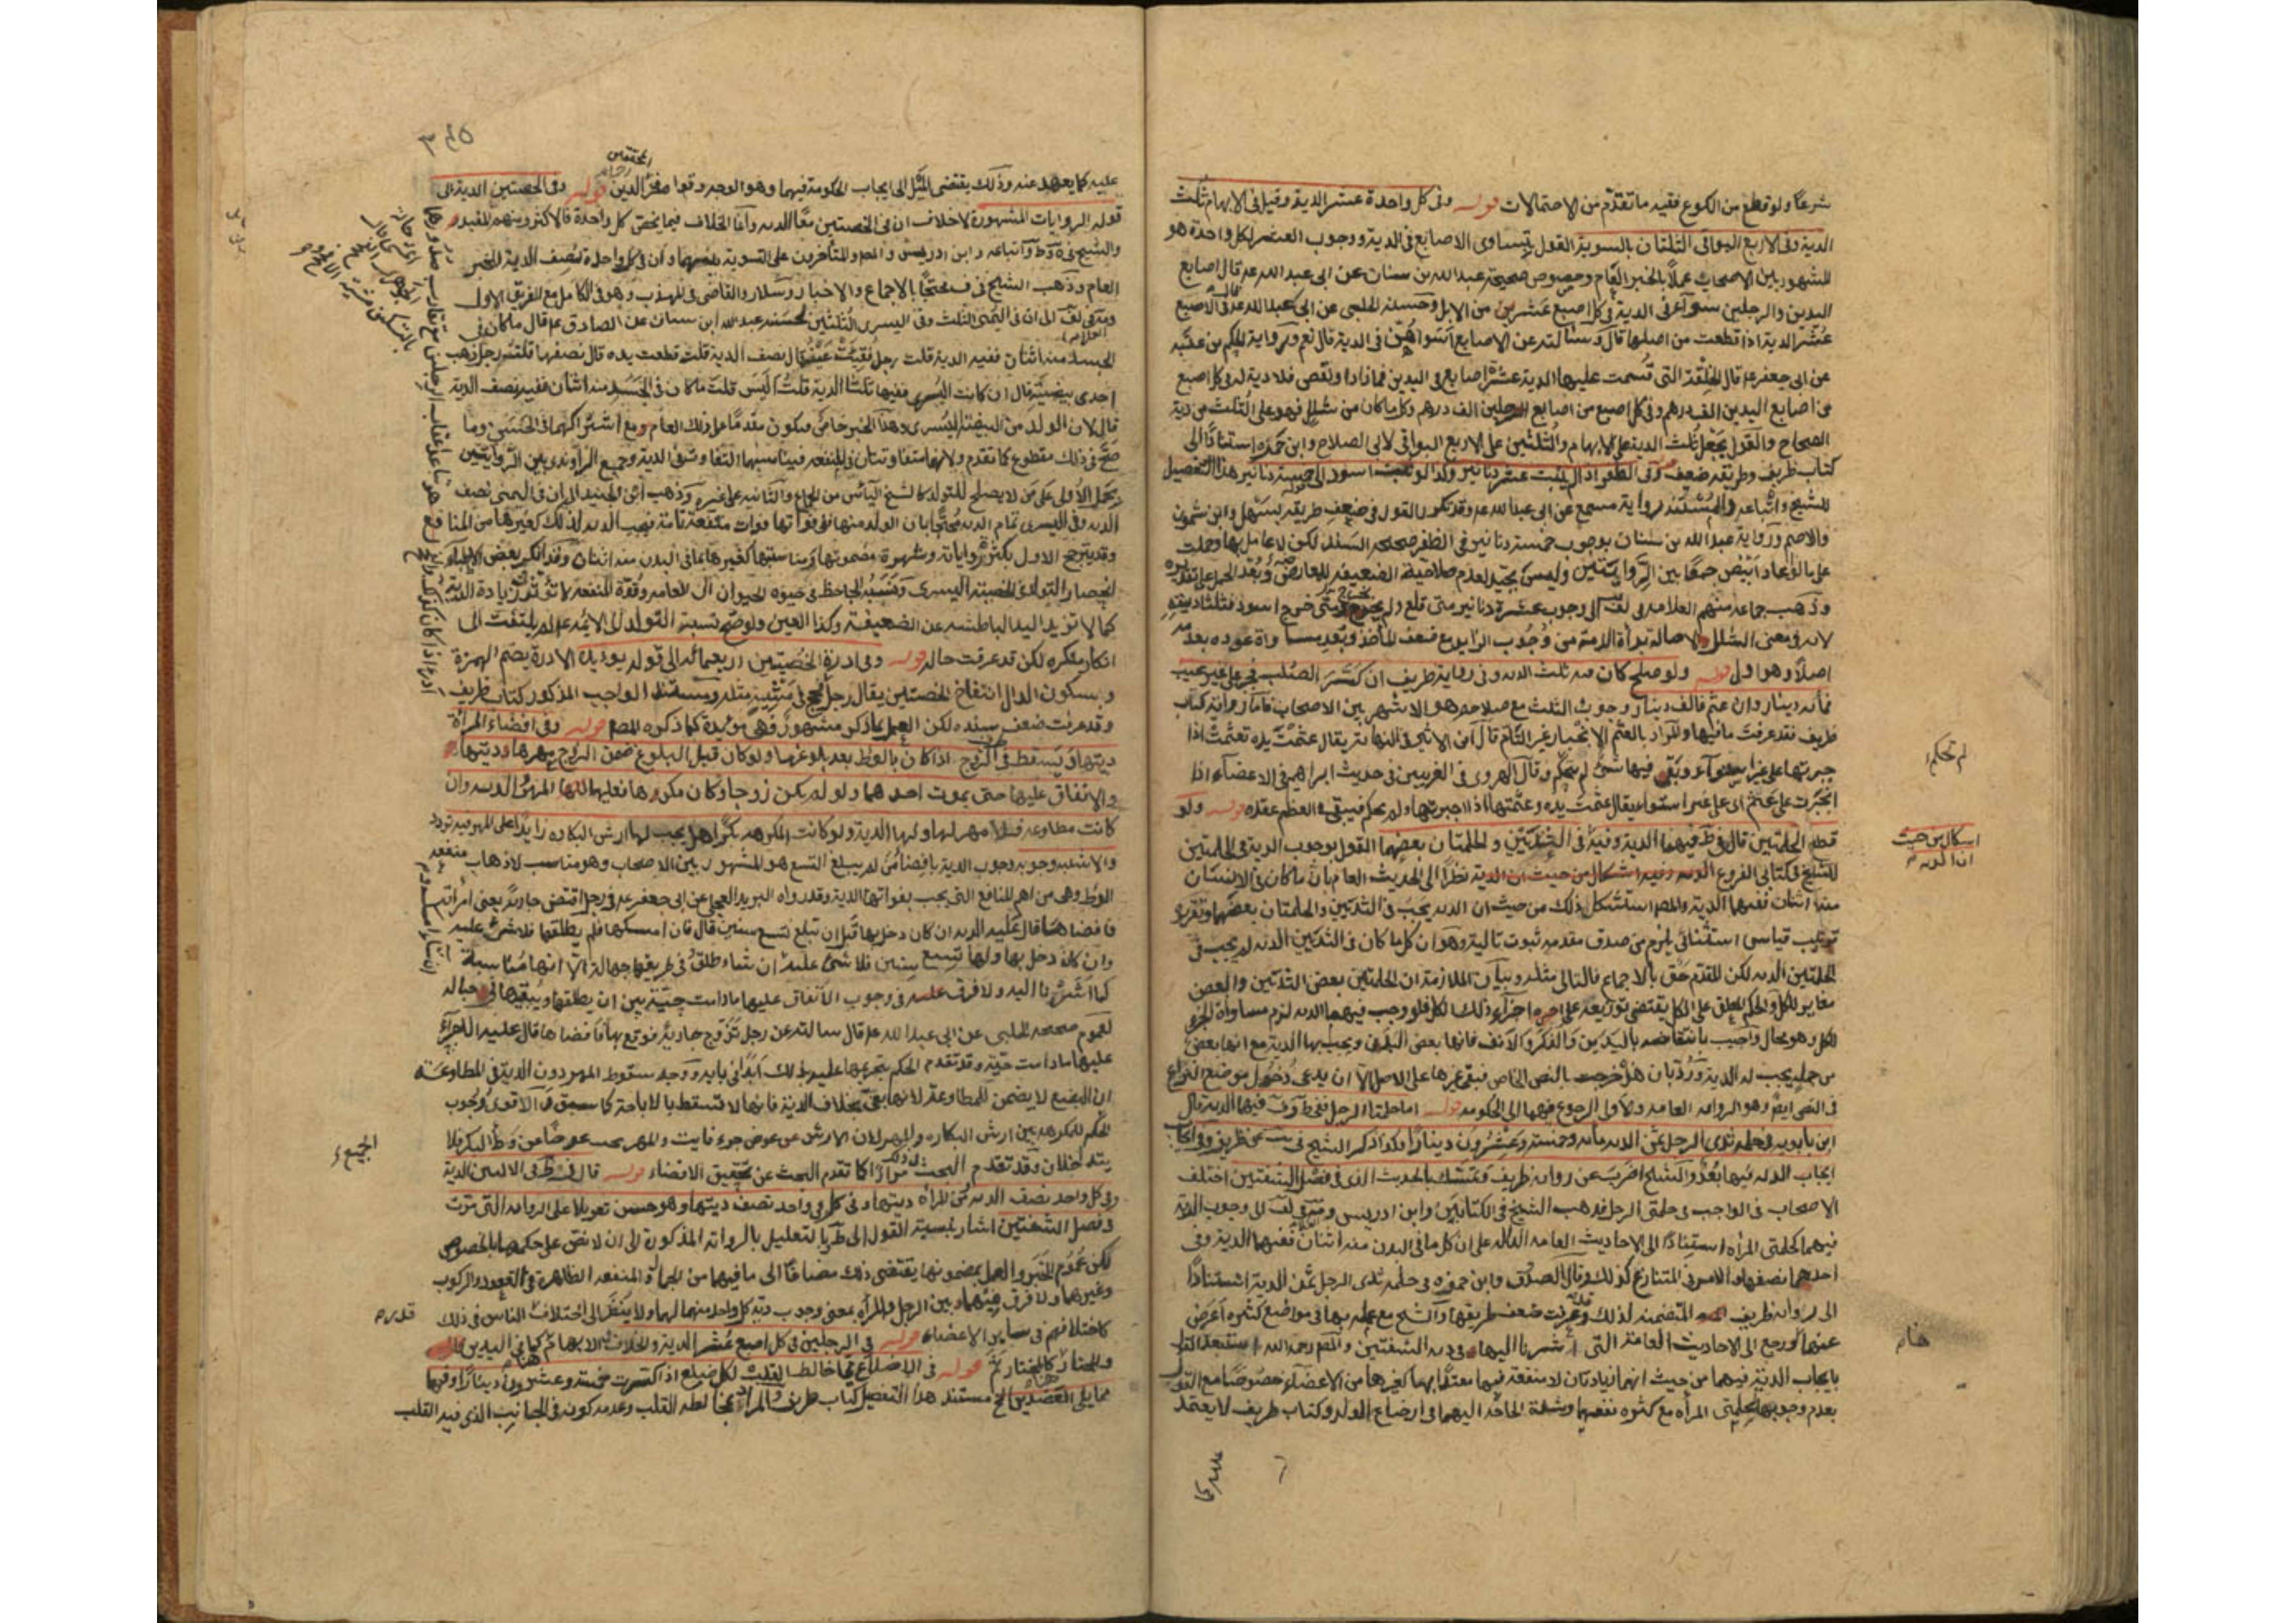 شرعًا ولو قطع من الكوع ففيه ما تقدّم من الاحتمالات قوله وفي كل واحدة عشر الدية وقيل في الابهام ثلث
الدية وفي الاربع البواقي الثلثان بالسوية القول بتساوي الاصابع في الدية ووجوب العشر لكل واحدة هو
المشهور بين الاصحاب عملاً بالخبر العام وخصوص صحيحة عبد الله بن سنان عن ابي عبد الله عه قال اصابع
اليدين والرجلين سواء في الدية في كل اصبع عشر من الابل وحسنة الحلبي عن ابي عبد الله عه في الاصبع
عُشْر الدية اذا قطعت من اصلها قال وسالته عن الاصابع أسَواءٌ هُنّ في الدية قال نعم ورواية الحكم بن عتيبة
عن ابي جعفر عه قال الخلقة التي قُسمت عليها الدية عشرة اصابع في اليدين فما زاد او نقص فلا دية له في كل اصبع
من اصابع اليدين الف درهم وفي كل اصبع من اصابع الرجلين الف درهم وكل ما كان من شلل فهو على الثلث من دية
الصحاح والقول بجعل ثلث الدية على الابهام والثلثين على الاربع البواقي لابي الصلاح وابن حمزة استنادًا الى
كتاب ظريف وطريقه ضعيف قوله وفي الظفر اذا لم ينبت عشرة دنانير وكذا لو نبت اسود الى خمسة دنانير هذا التفصيل
للشيخ واتباعه والمستند رواية مسمع عن ابي عبد الله عه وقد تكرر القول في ضعف طريقه بسهل وابن شمون
والاصم ورواية عبد الله بن سنان بوجوب خمسة دنانير في الظفر صحيحة السند لكن لا عامل بها وحملت
على ما لو عاد ابيض جمعًا بين الروايتين وليس بجيد لعدم صلاحية الضعيفة للمعارضة وبُعد الحمل على تقديره
وذهب جماعة منهم العلامة في لف الى وجوب عشرة دنانير متى قلع ولم يخرج ومتى خرج اسود فثلثا ديته
لانه في معنى الشلل والاصالة براة الذمة من وجوب الزايد مع ضعف المأخذ وبُعد مساواة عوده بعدمه
اصلاً وهو اولى قوله ولو صلح كان فيه ثلث الدية وفي رواية ظريف ان كسر الصلب فجبر على غير عيب
فمائة دينار وان عثم فالف دينار وجوب الثلث مع صلاحه هو الاشهر بين الاصحاب فاما رواية كتاب
ظريف فقد عرفت ما فيها والمراد بالعثم الانجبار غير التام قال ابن الاثير في النهاية يقال عثمت يده تعثمت اذا
جبرتها على غير استواء وبقي فيها شيء لم ينحكم وقال الهروي في الغريبين في حديث ابراهيم في الاعضاء اذا
انجبرت على عثم اي على غير استواء يقال عثمت يده وعثمتها اذا جبرتها ولم يحكم فيبقى في العظم عقده قوله ولو
قطع الحلمتين قال في ط فيهما الدية وفيه في الثديين والحلمتان بعضهما القول بوجوب الدية في الحلمتين
للشيخ في كتابي الفروع الدية وفيه اشكال من حيث ان الدية نظرًا الى الحديث العام بأن ما كان في الانسان
منه اثنان ففيهما الدية والمصـ استشكل ذلك من حيث ان الدية تجب في الثديين والحلمتان بعضهما وتقريره
تركيب قياس استثنائي يلزم من صدق مقدمه ثبوت تاليه وهو ان كل ما كان في الثديين الدية لم يجب في
الحلمتين الدية لكن المقدم حق بالاجماع فالتالي مثله وبيان الملازمة ان الحلمتين بعض الثديين والبعض
مغاير للكل والحكم المعلق على الكل يقتضي توزيعه على اجزاء ذلك الكل فلو وجب فيهما الدية لزم مساواة الجزء
للكل وهو محال واجيب بانتقاضه باليدين والذكر والانف فانها بعض البدن ويجب بها الدية مع انها بعض
من جملة يجب له الدية ورُدّ بان هذا خرجت بالنص الخاص فبقي غيرها على الاصل الا ان يدعى دخول موضع النزاع
في النص ايضًا وهو الرواية العامة والاولى الرجوع فيهما الى الحكومة قوله اما حلمتا الرجل ففي ط وف فيهما الدية قال
ابن بابويه في حلمة ثدي الرجل ثمن الدية مائة وخمسة وعشرون دينارًا وكذا ذكر الشيخ في يب عن ظريف وفي ايجاب
ايجاب الدية فيهما بُعدٌ والشيخ اضرب عن رواية ظريف وتمسك بالحديث الذي في فصل الشفتين اختلف
الاصحاب في الواجب في حلمتي الرجل فذهب الشيخ في الكتابين وابن ادريس ومة في لف الى وجوب الدية
فيهما كحلمتي المرأة استنادًا الى الاحاديث العامة الدالة على ان كل ما في البدن منه اثنان ففيهما الدية وفي
احدهما نصفها والامر في المتنازع كذلك وقال الصدوق وابن حمزه في حلمة ثدي الرجل ثمن الدية استنادًا
الى رواية ظريف المتضمنة لذلك وقد عرفت ضعف طريقها والشيخ مع عمله بها في مواضع كثيرة اعرض
عنها ورجع الى الاحاديث العامة التي اشرنا اليها في دية الشفتين والمصـ رحمه الله استبعد القول
بايجاب الدية فيهما من حيث انهما زيادتان لا منفعة فيهما معتدًا بها كغيرها من الاعضاء خصوصًا مع القول
بعدم وجوبها لحلمتي المرأة مع كثرة نفعهما وشدة الحاجة اليهما في ارضاع الولد وكتاب ظريف لا يعتمد
عليه كما
لم تحكم
اشكال من حيث
ان الدية
هنا
٣٤٥
عليه كما يعهد عنه وذلك يقتضي الميل الى ايجاب الحكومة فيهما وهو الوجه وقواه فخر الدين قوله وفي الخصيتين الدية الى
قوله الروايات المشهورة لا خلاف ان في الخصيتين معًا الدية وانما الخلاف فيما يخص كل واحدة فالاكثر ومنهم المفيد
والشيخ في ية وط واتباعه وابن ادريس والمصـ والمتأخرون على التسوية بينهما وان في كل واحدة نصف الدية للخبر
العام وذهب الشيخ في ف محتجًا بالاجماع والاخبار وسلار والقاضي في المهذب وهو في الكامل مع الفريق الاول
ومة في لف الى ان في اليمنى الثلث وفي اليسرى الثلثين لحسنة عبد الله ابن سنان عن الصادق عه قال ما كان في
الجسد منه اثنان ففيه الدية قلت رجل فقئت عينه قال نصف الدية قلت قطعت يده قال نصفها قلت رجل ذهب
احدى بيضتيه قال ان كانت اليسرى ففيها ثلثا الدية قلت اليس قلت ما كان في الجسد منه اثنان ففيه نصف الدية
قال لان الولد من البيضة اليسرى وهذا الخبر خاص فيكون مقدمًا على ذلك العام
صح في ذلك مقطوع كما تقدم ولانهما متفاوتتان في المنفعة فيناسبهما التفاوت في الدية وجمع الراوندي بين الروايتين
بحمل الاولى على من لا يصلح للتولد كالشيخ اليائس من الجماع والثانية على غيره وذهب ابن الجنيد الى ان في اليمنى نصف
الدية وفي اليسرى تمام الدية محتجًا بان الولد منها ففي فواتها فوات منفعة تامة فيجب الدية لذلك كغيرها من المنافع
وقد يترجح الاول بكثرة رواياته وشهرة مضمونها ومناسبتها لغيرها مما في البدن منه اثنان وقد انكر بعض الاطباء
انحصار التولد في الخصية اليسرى ونسبه الجاحظ في حيوة الحيوان الى العامة وقوة المنفعة لا تؤثر في زيادة الدية
كما لا تزيد اليد الباطشة عن الضعيفة وكذا العين ولو صح نسبة التولد الى الائمة عه لم يلتفت الى
انكار منكره لكن قد عرفت حاله قوله وفي ادرة الخصيتين اربعمائة الى قوله يؤيده الادرة بضم الهمزة
وبسكون الدال انتفاخ الخصيتين يقال رجل ومستند الواجب المذكور كتاب ظريف
وقد عرفت ضعف سنده لكن العمل بما ذكر مشهور فهي مؤيدة كما ذكره المصـ قوله وفي افضاء المرأة
ديتها ويسقط في الزوج اذا كان بالوطئ بعد بلوغها ولو كان قبل البلوغ ضمن الزوج مهرها وديتها
والانفاق عليها حتى يموت احدهما ولو لم يكن زوجًا وكان مكرها فعليه لها المهر والدية وان
كانت مطاوعة فلا مهر لها ولها الدية ولو كانت المكرهة بكرًا هل يجب لها ارش البكارة زايدًا على المهر فيه تردد
والاشبه وجوبه وجوب الدية بافضاء من لم يبلغ التسع هو المشهور بين الاصحاب وهو مناسب لاذهاب منفعة
الوطئ وهي من اهم المنافع التي يجب بفواتها الدية وقد رواه البريد العجلي عن ابي جعفر عه في رجل افتض جارية يعني امرأته
فافضاها قال عليه الدية ان كان دخل بها قبل ان تبلغ تسع سنين قال فان امسكها فلم يطلقها فلا شيء عليه
وان كان دخل بها ولها تسع سنين فلا شيء عليه ان شاء طلق وفي طريقها جهالة الا انها مناسبة
كما اشرنا اليه ولا فرق عليه في وجوب الانفاق عليها ما دامت حيّة بين ان يطلقها ويبقيها في حباله
لعموم صحيحة الحلبي عن ابي عبد الله عه قال سالته عن رجل تزوج جارية فوقع بها فافضاها قال عليه الاجراء
عليها ما دامت حيّة وقد تقدم الحكم بتحريمها عليه بذلك ابدًا في بابه ووجه سقوط المهر دون الدية في المطاوعة
ان البضع لا يضمن للمطاوعة لانها بغي بخلاف الدية فانها لا تسقط بالاباحة كما سبق والاقوى وجوب
الحكم للمكرهة بين ارش البكارة والمهر لان الارش عن عوض جزء فايت والمهر يجب عوضًا عن وطئ البكر فلا
يتداخلان وقد تقدم البحث مرارًا كما تقدم البحث عن تحقيق الافضاء قوله قال في ط في الاليين الدية
وفي كل واحد نصف الدية ومن المرأة ديتها وفي كل واحد نصف ديتها وهو حسن تعويلًا على الرواية التي مرت
في فصل الشفتين اشار بنسبة القول الى ط وبالتعليل بالرواية المذكورة الى ان لا نص على حكمهما بالخصوص
لكن عموم الخبر والعمل بمضمونها يقتضي ذلك مضافًا الى ما فيهما من الجمال والمنفعة الظاهرة في القعود والركوب
وغيرهما ولا فرق فيهما بين الرجل والمرأة بمعنى وجوب دية كل واحد منهما لهما ولا ينظر الى اختلاف الناس في ذلك
كاختلافهم في ساير الاعضاء قوله في الرجلين في كل اصبع عُشر الدية والخلاف هنا في الابهام كما في اليدين
والمختار كالمختار ثَمّ قوله في الاضلاع مما خالط القلب لكل ضلع اذا كسرت خمسة وعشرون دينارًا وفيها
مما يلي العضدين الخ مستند هذا التفصيل كتاب ظريف والمراد بمخالطة القلب وعدمه كونه في الجانب الذي فيه القلب
الجميع